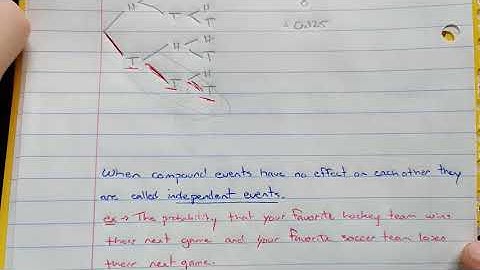 H
T H
T
H H
T
T T H
T
= 0.125
When compound events have no effect on eachother they
are called independent events.
ex → The probability that your favorite hockey team wins
their next game and your favorite soccer team loses
their next game.